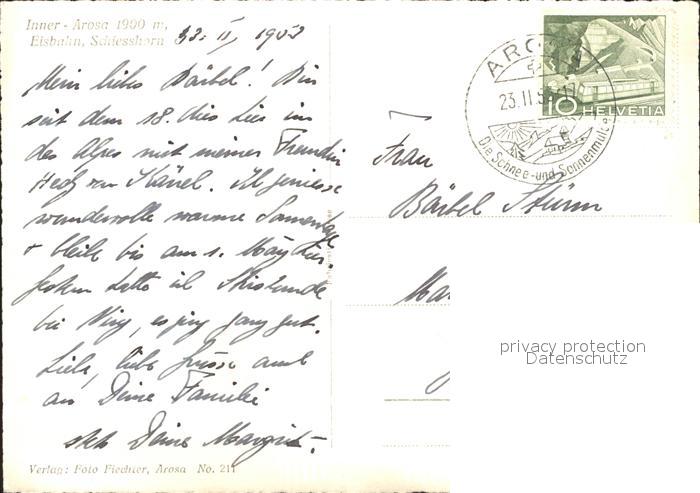 Inner - Arosa 1900 m,
Eisbahn, Schiesshorn
23. II. 1953
Mein liebes Bärbel! Bin
seit dem 18. dies hier in
den Alpen mit meiner Freundin
Hedy von Känel. Ich geniesse
wundervolle warme Sonnentage
+ bleibe bis am 1. März hier.
Gestern hatte ich Skistunde
bei es ging ganz gut.
Liebe, liebe Grüsse auch
an Deine Familie
stets Deine Margrit.
Verlag: Foto Fiechter, Arosa No. 211
AROSA
23.II.5
Die Schnee- und Sonnenmulde
10 HELVETIA
Frau
Bärbel Stürm
privacy protection
Datenschutz